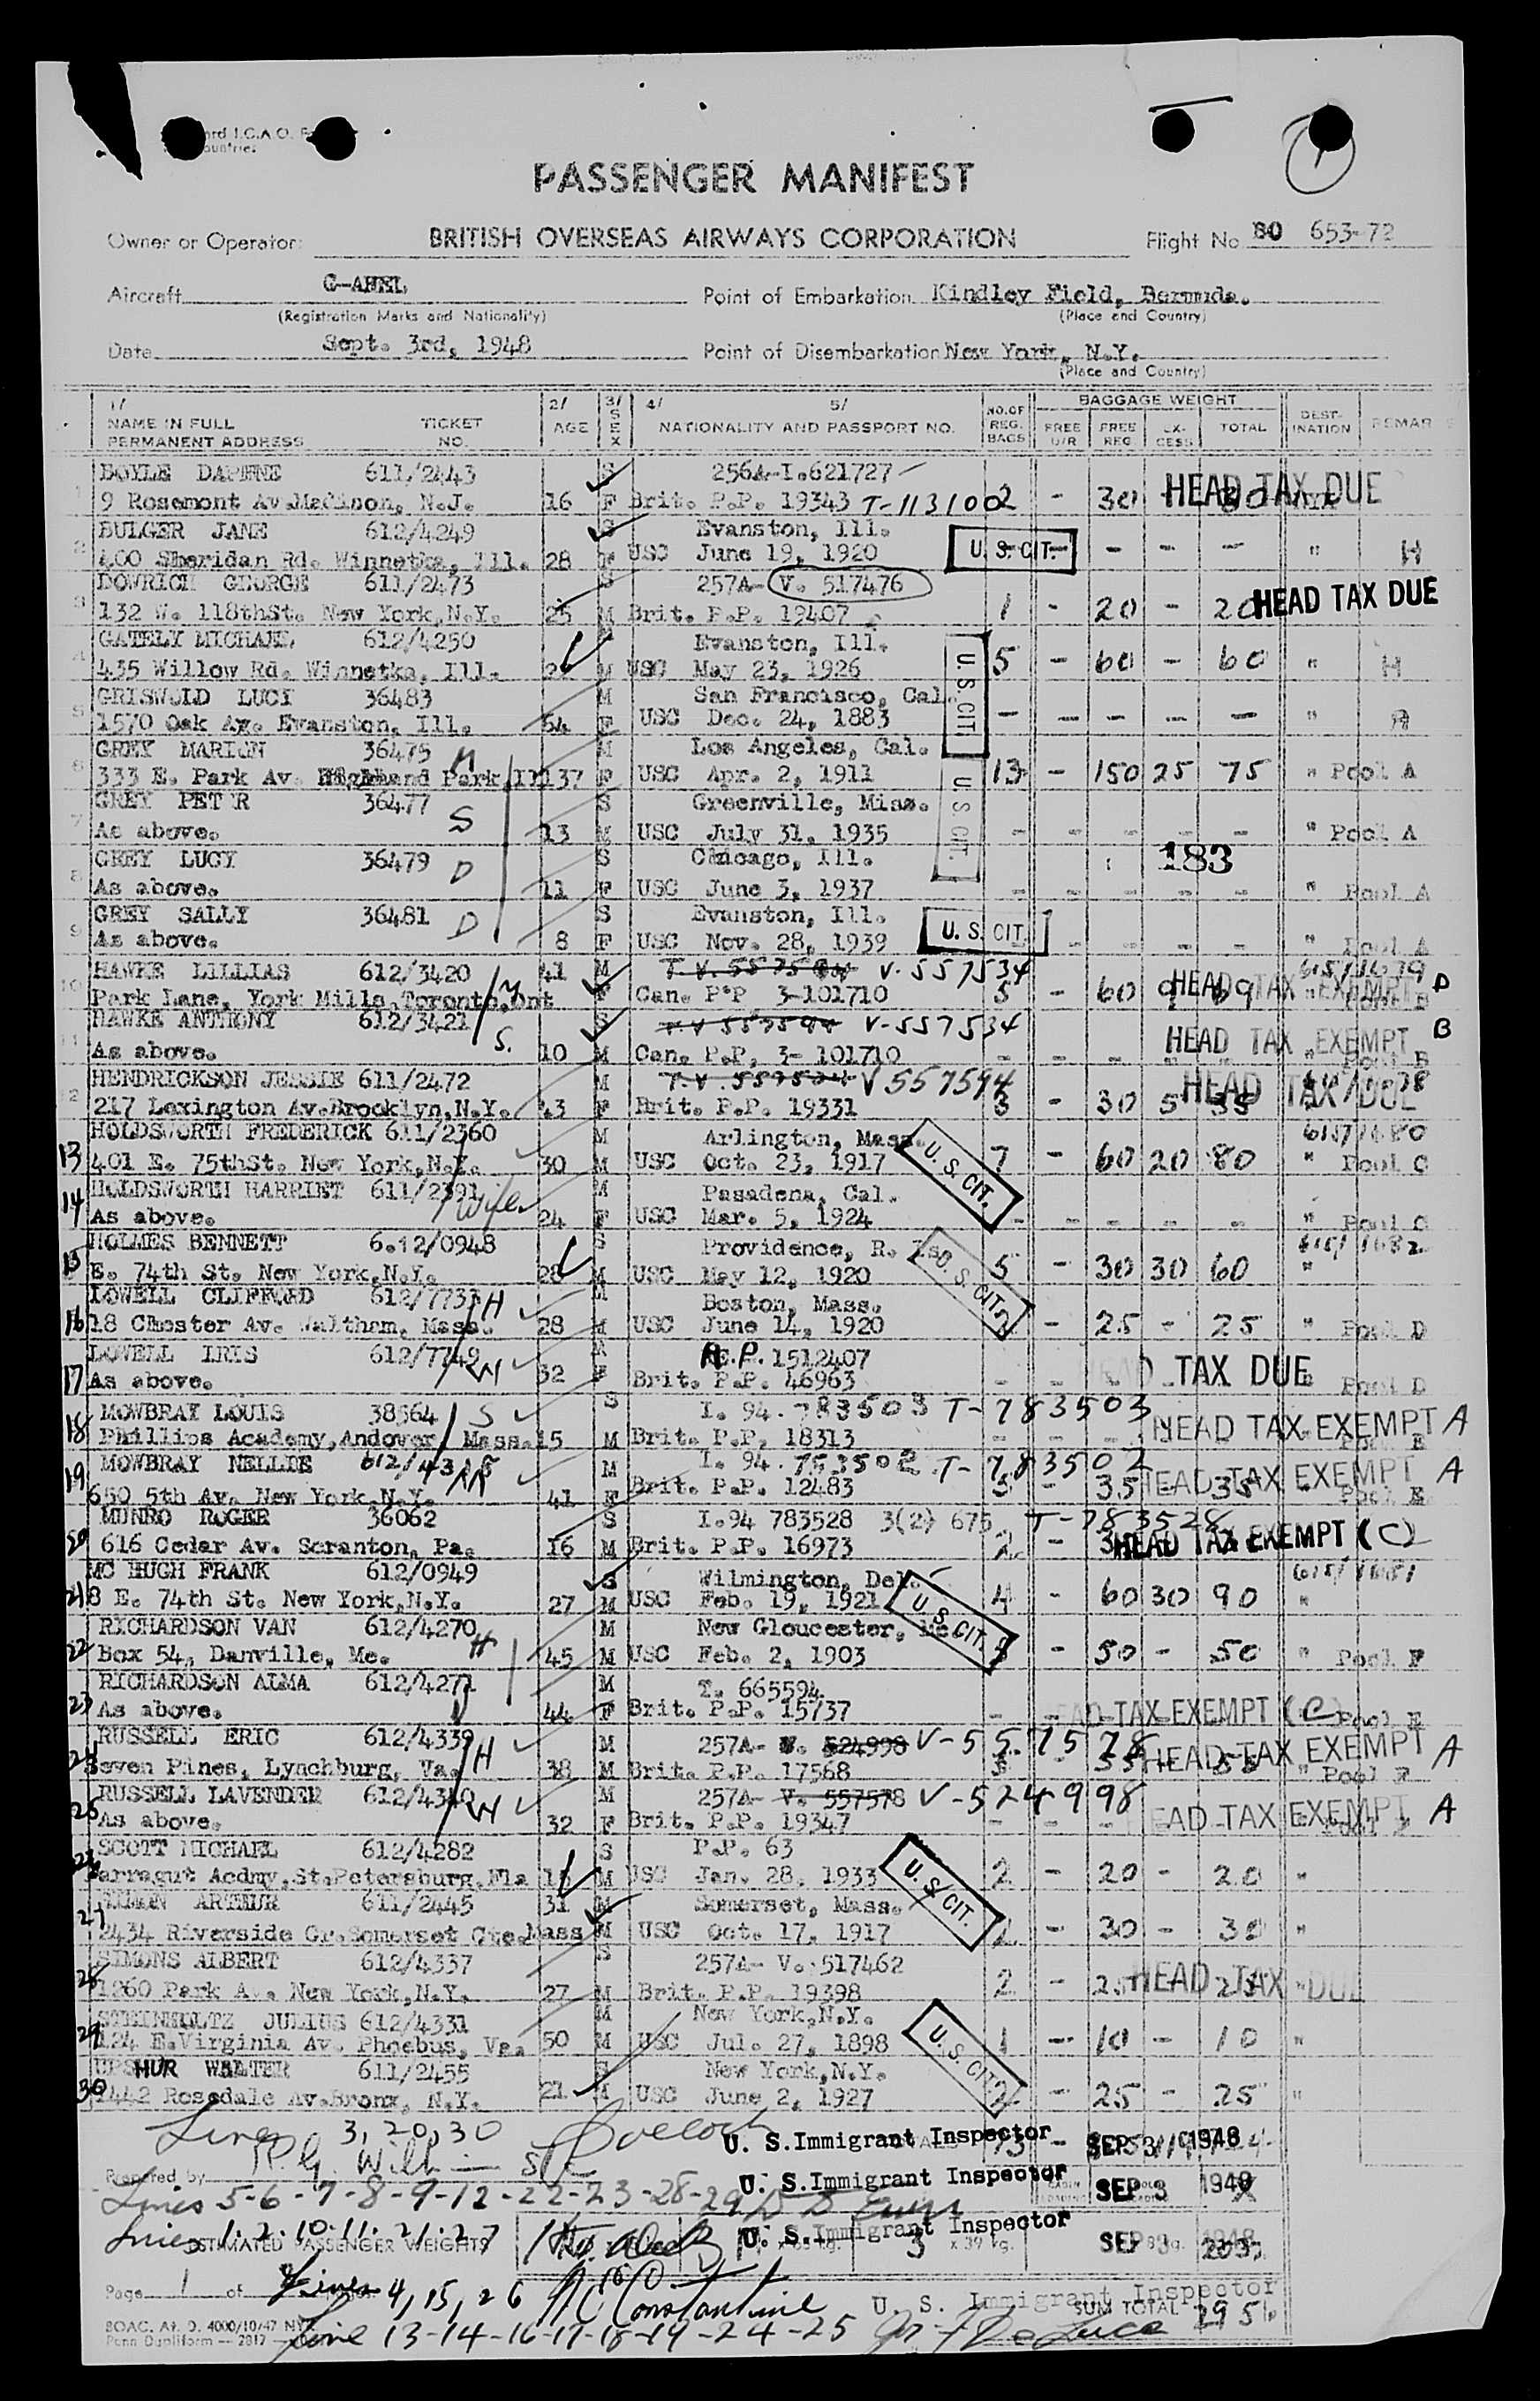 PASSENGER MANIFEST
Owner or Operator: BRITISH OVERSEAS AIRWAYS CORPORATION Flight No. BO 653-72
Aircraft Point of Embarkation Kindley Field, Bermuda.
(Registration Marks and Nationality) (Place and Country)
Date Sept. 3rd, 1948 Point of Disembarkation New York, N.Y.
(Place and Country)
1/ 2/ 3/ 4/ 5/ BAGGAGE WEIGHT
NAME IN FULL TICKET AGE SEX NATIONALITY AND PASSPORT NO. NO. OF REG. BAGS FREE U/R FREE REG EX-CESS TOTAL DEST-INATION REMAR
PERMANENT ADDRESS NO.
BOYLE 611/2443 S 256A-I.621727 HEAD TAX DUE
9 Rosemont Av.Madison, N.J. 16 F Brit. P.P. 19343 T-113100 2 - 30
BULGER JANE 612/4249 S Evanston, Ill.
400 Sheridan Rd. Winnetka, Ill. 28 F USC June 19, 1920 U.S. CIT. - - - " H
DOWRICH GEORGE 611/2473 S 257A- V. 517476
132 W. 118thSt. New York,N.Y. 25 M Brit. P.P. 19407 1 - 20 - 20 HEAD TAX DUE
GATELY MICHAEL 612/4250 Evanston, Ill.
435 Willow Rd. Winnetka, Ill. M USC May 23, 1926 U.S. CIT 5 - 60 - 60 " H
GRISWOLD LUCY 36483 M San Francisco, Cal.
1570 Oak Av. Evanston, Ill. 64 F USC Dec. 24, 1883 - - - - - "
GREY MARION 36475 M Los Angeles, Cal.
333 E. Park Av. Highland Park,Ill 37 F USC Apr. 2, 1911 U.S. CIT. 13 - 150 25 75 " Pool A
GREY PETER 36477 S S Greenville, Miss.
As above. 13 M USC July 31, 1935 - - - - - " Pool A
GREY LUCY 36479 D S Chicago, Ill. 183
As above. 11 F USC June 3, 1937 - - - - - " Pool A
GREY SALLY 36481 D S Evanston, Ill. U.S. CIT.
As above. 8 F USC Nov. 28, 1939 - - - - - " Pool A
HAWKE LILLIAS 612/3420 41 M V-557534
Park Lane, York Mills,Toronto,Ont F Can. P.P 3-101710 5 - 60 9 69 HEAD TAX EXEMPT B
HAWKE ANTHONY 612/3421 S. S V-557534 HEAD TAX EXEMPT B
As above. 10 M Can. P.P. 3-101710 - - -
HENDRICKSON JESSIE 611/2472 M V 557594 HEAD TAX DUE
217 Lexington Av.Brooklyn,N.Y. 43 F Brit. P.P. 19331 3 - 30 5 35
HOLDSWORTH FREDERICK 611/2360 M Arlington, Mass. 615/1680
13 401 E. 75thSt. New York,N.Y. 30 M USC Oct. 23, 1917 U.S. CIT. 7 - 60 20 80 " Pool C
HOLDSWORTH HARRIET 611/2391 Wife M Pasadena, Cal.
14 As above. 24 F USC Mar. 5, 1924 - - - - - " Pool C
HOLMES BENNETT 6.12/0948 S Providence, R. Is. 615/1682
15 E. 74th St. New York,N.Y. 28 M USC May 12, 1920 U.S. CIT. 5 - 30 30 60 "
LOWELL CLIFFORD 612/7733 H M Boston, Mass.
16 18 Chester Av. Waltham, Mass. 28 M USC June 14, 1920 2 - 25 - 25 " Pool D
LOWELL IRIS 612/7749 W M P. 1512407
17 As above. 32 F Brit. P.P. 46963 HEAD TAX DUE Pool D
MOWBRAY LOUIS 38564 S S I. 94. 783503 T-783503
18 Phillips Academy,Andover, Mass. 15 M Brit. P.P. 18313 HEAD TAX EXEMPT A
MOWBRAY NELLIE M M I. 94. 783502 T-783502
19 650 5th Av. New York,N.Y. 41 F Brit. P.P. 12483 3 - 35 - 35 HEAD TAX EXEMPT A
MUNRO ROGER 36062 S I.94 783528 3(2) 675 T-783528
20 616 Cedar Av. Scranton, Pa. 16 M Brit. P.P. 16973 2 - HEAD TAX EXEMPT (C)
MC HUGH FRANK 612/0949 S Wilmington, Del. 615/1681
21 8 E. 74th St. New York,N.Y. 27 M USC Feb. 19, 1921 U.S. CIT. 4 - 60 30 90 "
RICHARDSON VAN 612/4270 H M New Gloucester, Me.
22 Box 54, Danville, Me. 45 M USC Feb. 2, 1903 - 50 - 50 " Pool F
RICHARDSON ALMA 612/4271 M T. 665594
23 As above. 44 F Brit. P.P. 15737 HEAD TAX EXEMPT (C)
RUSSELL ERIC 612/4339 H M 257A- V. 524998 V-557578
Seven Pines, Lynchburg, Va. 38 M Brit. P.P. 17568 HEAD TAX EXEMPT A
RUSSELL LAVENDER 612/4340 W M 257A- V. 557578 V-524998
25 As above. 32 F Brit. P.P. 19347 HEAD TAX EXEMPT A
SCOTT MICHAEL 612/4282 S P.P. 63
Farragut Acdmy,St.Petersburg,Fla 15 M USC Jan. 28, 1933 U.S. CIT. 2 - 20 - 20 "
ARTHUR 611/2445 31 M Somerset, Mass.
27 2434 Riverside Gr.Somerset Cte.Mass M USC Oct. 17, 1917 - 30 - 30 "
SIMONS ALBERT 612/4337 S 257A- V. 517462
1260 Park Av. New York,N.Y. 27 M Brit. P.P. 19398 2 - 25 HEAD TAX DUE
STEINHOLTZ JULIUS 612/4331 M New York,N.Y.
29 124 E.Virginia Av. Phoebus, Va. 50 M USC Jul. 27, 1898 U.S. CIT. 1 - 10 - 10 "
UPSHUR WALTER 611/2455 S New York,N.Y.
30 1442 Rosedale Av.Bronx, N.Y. 21 M USC June 2, 1927 2 - 25 - 25 "
Lines 3, 20, 30 U. S. Immigrant Inspector SEP 3 1948
Prepared by U. S. Immigrant Inspector SEP 3 1948
Lines 5-6-7-8-9-12-22-23-28-29
Lines 1. 2. 10. 11. 21. 27 U. S. Immigrant Inspector SEP 3 1948
ESTIMATED PASSENGER WEIGHTS 3 x 39 kg.
Page 1 of Lines 4, 15, 26 Constantine U. S. Immigrant Inspector
SUM TOTAL
BOAC. Af. D. 4000/10/47 NY
Line 13-14-16-17-18-19-24-25